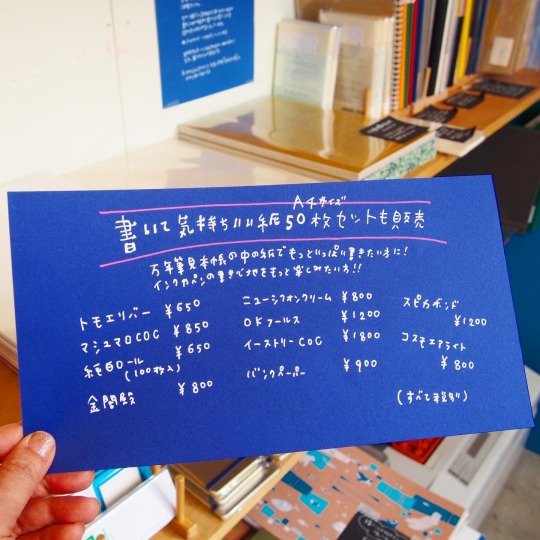 A4サイズ
書いて気持ちいい紙50枚セットも販売
万年筆見本帳の中の紙でもっといっぱい書きたい方に!
インクやペンの書き心地をもっと楽しみたい方!!
トモエリバー ¥650
マシュマロCOC ¥850
¥650
(100枚入)
金閣殿 ¥800
ニューシフォンクリーム ¥800
OKフールス ¥1200
イーストリーCOC ¥1800
バンクペーパー ¥900
スピカボンド
¥1200
コスモエアライト
¥800
(すべて税別)